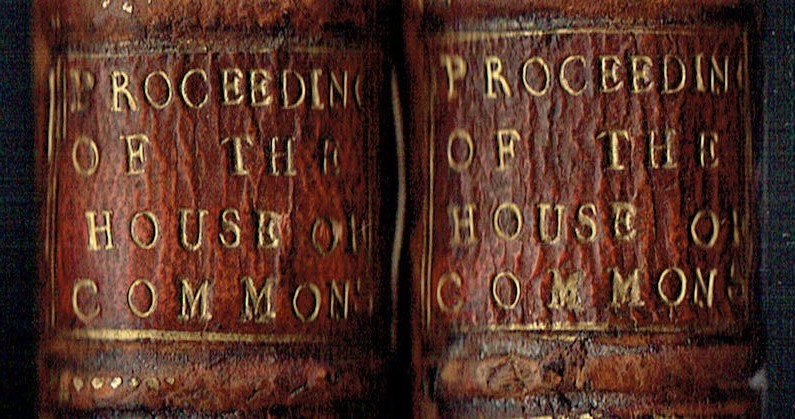 PROCEEDING
OF THE
HOUSE OF
COMMONS
PROCEEDING
OF THE
HOUSE OF
COMMONS